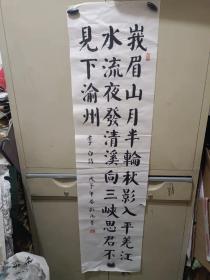 峩眉山月半輪秋影入平羌江
水流夜發清溪向三峽思君不
見下渝州
李白詩